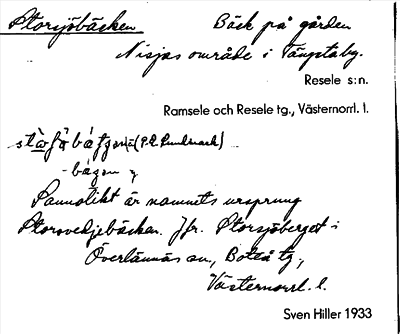 Storsjöbäcken Bäck på gården
Nisjas område i Tängstaby.
Resele s:n.
Ramsele och Resele tg., Västernorrl. l.
(P.E. Lundmark)
Sannolikt är namnets ursprung
Storsvedjebäcken. Jfr. Storsjöberget i
Överlännäs sn., Boteå tg.,
Västernorrl. l.
Sven Hiller 1933